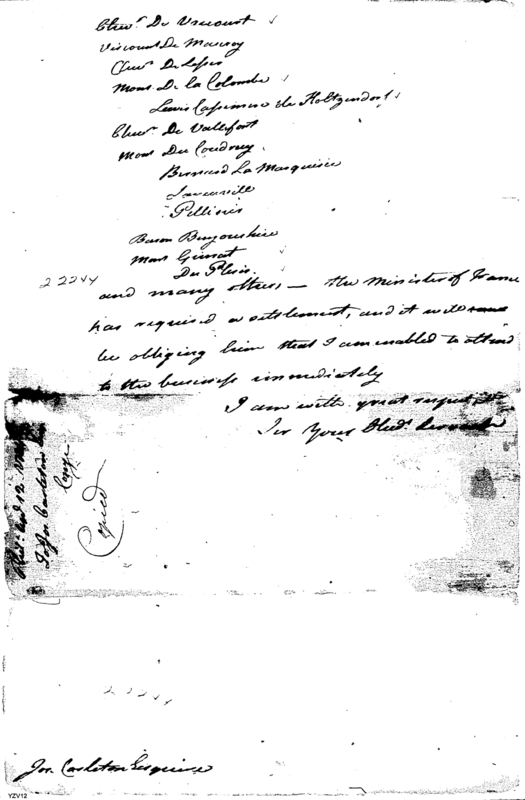 Chevr. De Vrecourt
Viscount De Mauroy
Chevr. De
Mons De la Colombe
Lewis Casimire de Holtzendorf
Chevr. De Vallefort
Mons Du Coudray
Bernard La Marquisie
Pellisier
Baron
Mons Gimat
Du Plesis
22244
and many others, — the Minister of France
has required a settlement, and it will
be obliging him that I am enabled to attend
to the business immediately
I am with great respect
Sir Your Obedt.
12
To Jos Carleton
Copied
22244
Jos. Carleton Esquire
YZV12